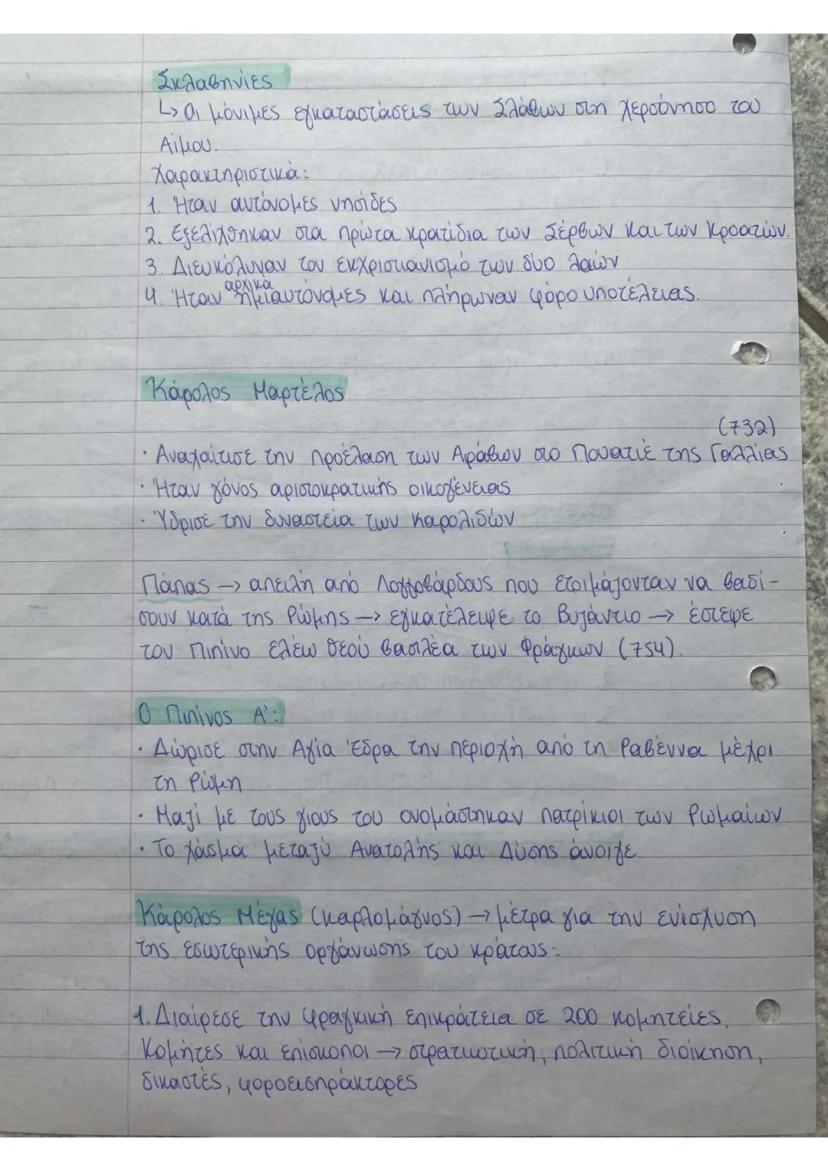 Σκλαβηνίες
↳ Οι μόνιμες εγκαταστάσεις των Σλάβων στη χερσόνησο του
Αίμου.
Χαρακτηριστικά:
1. Ήταν αυτόνομες νησίδες
2. Εξελίχθηκαν στα πρώτα κρατίδια των Σέρβων και των Κροατών.
3. Διευκόλυναν τον εκχριστιανισμό των δύο λαών
4. Ήταν αρχικά ημιαυτόνομες και πλήρωναν φόρο υποτέλειας.
Κάρολος Μαρτέλος
(732)
· Αναχαίτισε την προέλαση των Αράβων στο Πουατιέ της Γαλλίας
· Ήταν γόνος αριστοκρατικής οικογένειας
· Ύδρισε την δυναστεία των Καρολιδών
Πάπας → απειλή από Λογγοβάρδους που ετοιμάζονταν να βαδί-
σουν κατά της Ρώμης → εγκατέλειψε το Βυζάντιο → έστεψε
τον Πιπίνο ελέω θεού βασιλέα των Φράγκων (754).
Ο Πιπίνος Α':
· Δώρισε στην Αγία Έδρα την περιοχή από τη Ραβέννα μέχρι
τη Ρώμη
· Μαζί με τους γιους του ονομάστηκαν πατρίκιοι των Ρωμαίων
· Το χάσμα μεταξύ Ανατολής και Δύσης άνοιγε.
Κάρολος Μέγας (Καρλομάγνος) → μέτρα για την ενίσχυση
της εσωτερικής οργάνωσης του κράτους:
1. Διαίρεσε την φραγκική επικράτεια σε 200 κομητείες.
Κομήτες και επίσκοποι → στρατιωτική, πολιτική διοίκηση,
δικαστές, φοροεισπράκτορες